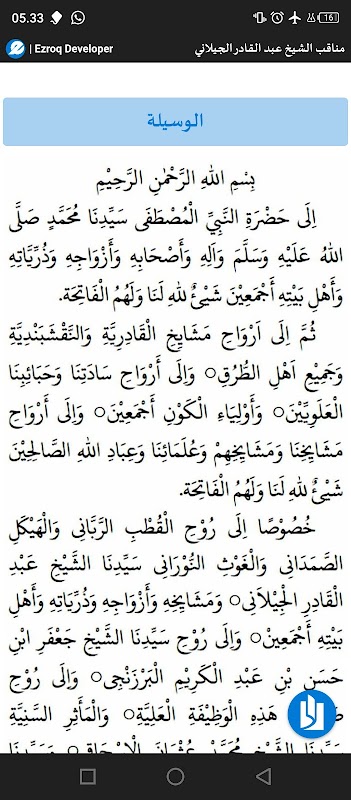 05.33
16
| Ezroq Developer
مناقب الشيخ عبد القادر الجيلاني
الوسيلة
بِسْمِ اللهِ الرَّحْمٰنِ الرَّحِيْمِ
اِلَى حَضْرَةِ النَّبِيِّ الْمُصْطَفَى سَيِّدِنَا مُحَمَّدٍ صَلَّى
اللهُ عَلَيْهِ وَسَلَّمَ وَآلِهِ وَأَصْحَابِهِ وَأَزْوَاجِهِ وَذُرِّيَّاتِهِ
وَأَهْلِ بَيْتِهِ أَجْمَعِيْنَ شَيْئٌ للهِ لَنَا وَلَهُمُ الْفَاتِحَة.
ثُمَّ اِلَى اَرْوَاحِ مَشَايِخِ الْقَادِرِيَّةِ وَالنَّقْشَبَنْدِيَّةِ
وَجَمِيْعِ اَهْلِ الطُّرُقِ○ وَاِلَى أَرْوَاحِ سَادَتِنَا وَحَبَائِبِنَا
الْعَلَوِيِّيْنَ○ وَأَوْلِيَاءِ الْكَوْنِ أَجْمَعِيْنَ○ وَاِلَى أَرْوَاحِ
مَشَايِخِنَا وَمَشَايِخِهِمْ وَعُلَمَائِنَا وَعِبَادِ اللهِ الصَّالِحِيْنَ
شَيْئٌ للهِ لَنَا وَلَهُمُ الْفَاتِحَة.
خُصُوْصًا اِلَى رُوْحِ الْقُطْبِ الرَّبَّانِى وَالْهَيْكَلِ
الصَّمَدَانِى وَالْغَوْثِ النُّوْرَانِى سَيِّدِنَا الشَّيْخِ عَبْدِ
الْقَادِرِ الْجِيْلَانِى○ وَمَشَايِخِهِ وَأَزْوَاجِهِ وَذُرِّيَّاتِهِ وَأَهْلِ
بَيْتِهِ أَجْمَعِيْنَ○ وَاِلَى رُوْحِ سَيِّدِنَا الشَّيْخِ جَعْفَرِ ابْنِ
حَسَنِ بْنِ عَبْدِ الْكَرِيْمِ الْبَرْزَنْجِى○ وَاِلَى رُوْحِ
هَذِهِ الْوَظِيْفَةِ الْعَلِيَّةِ○ وَالْمَأَثِرِ السَّنِيَّةِ
سَيِّدِنَا الشَّيْخِ مُحَمَّد عُثْمَان الْاِسْحَاقِى○ وَسَيِّدِنَا